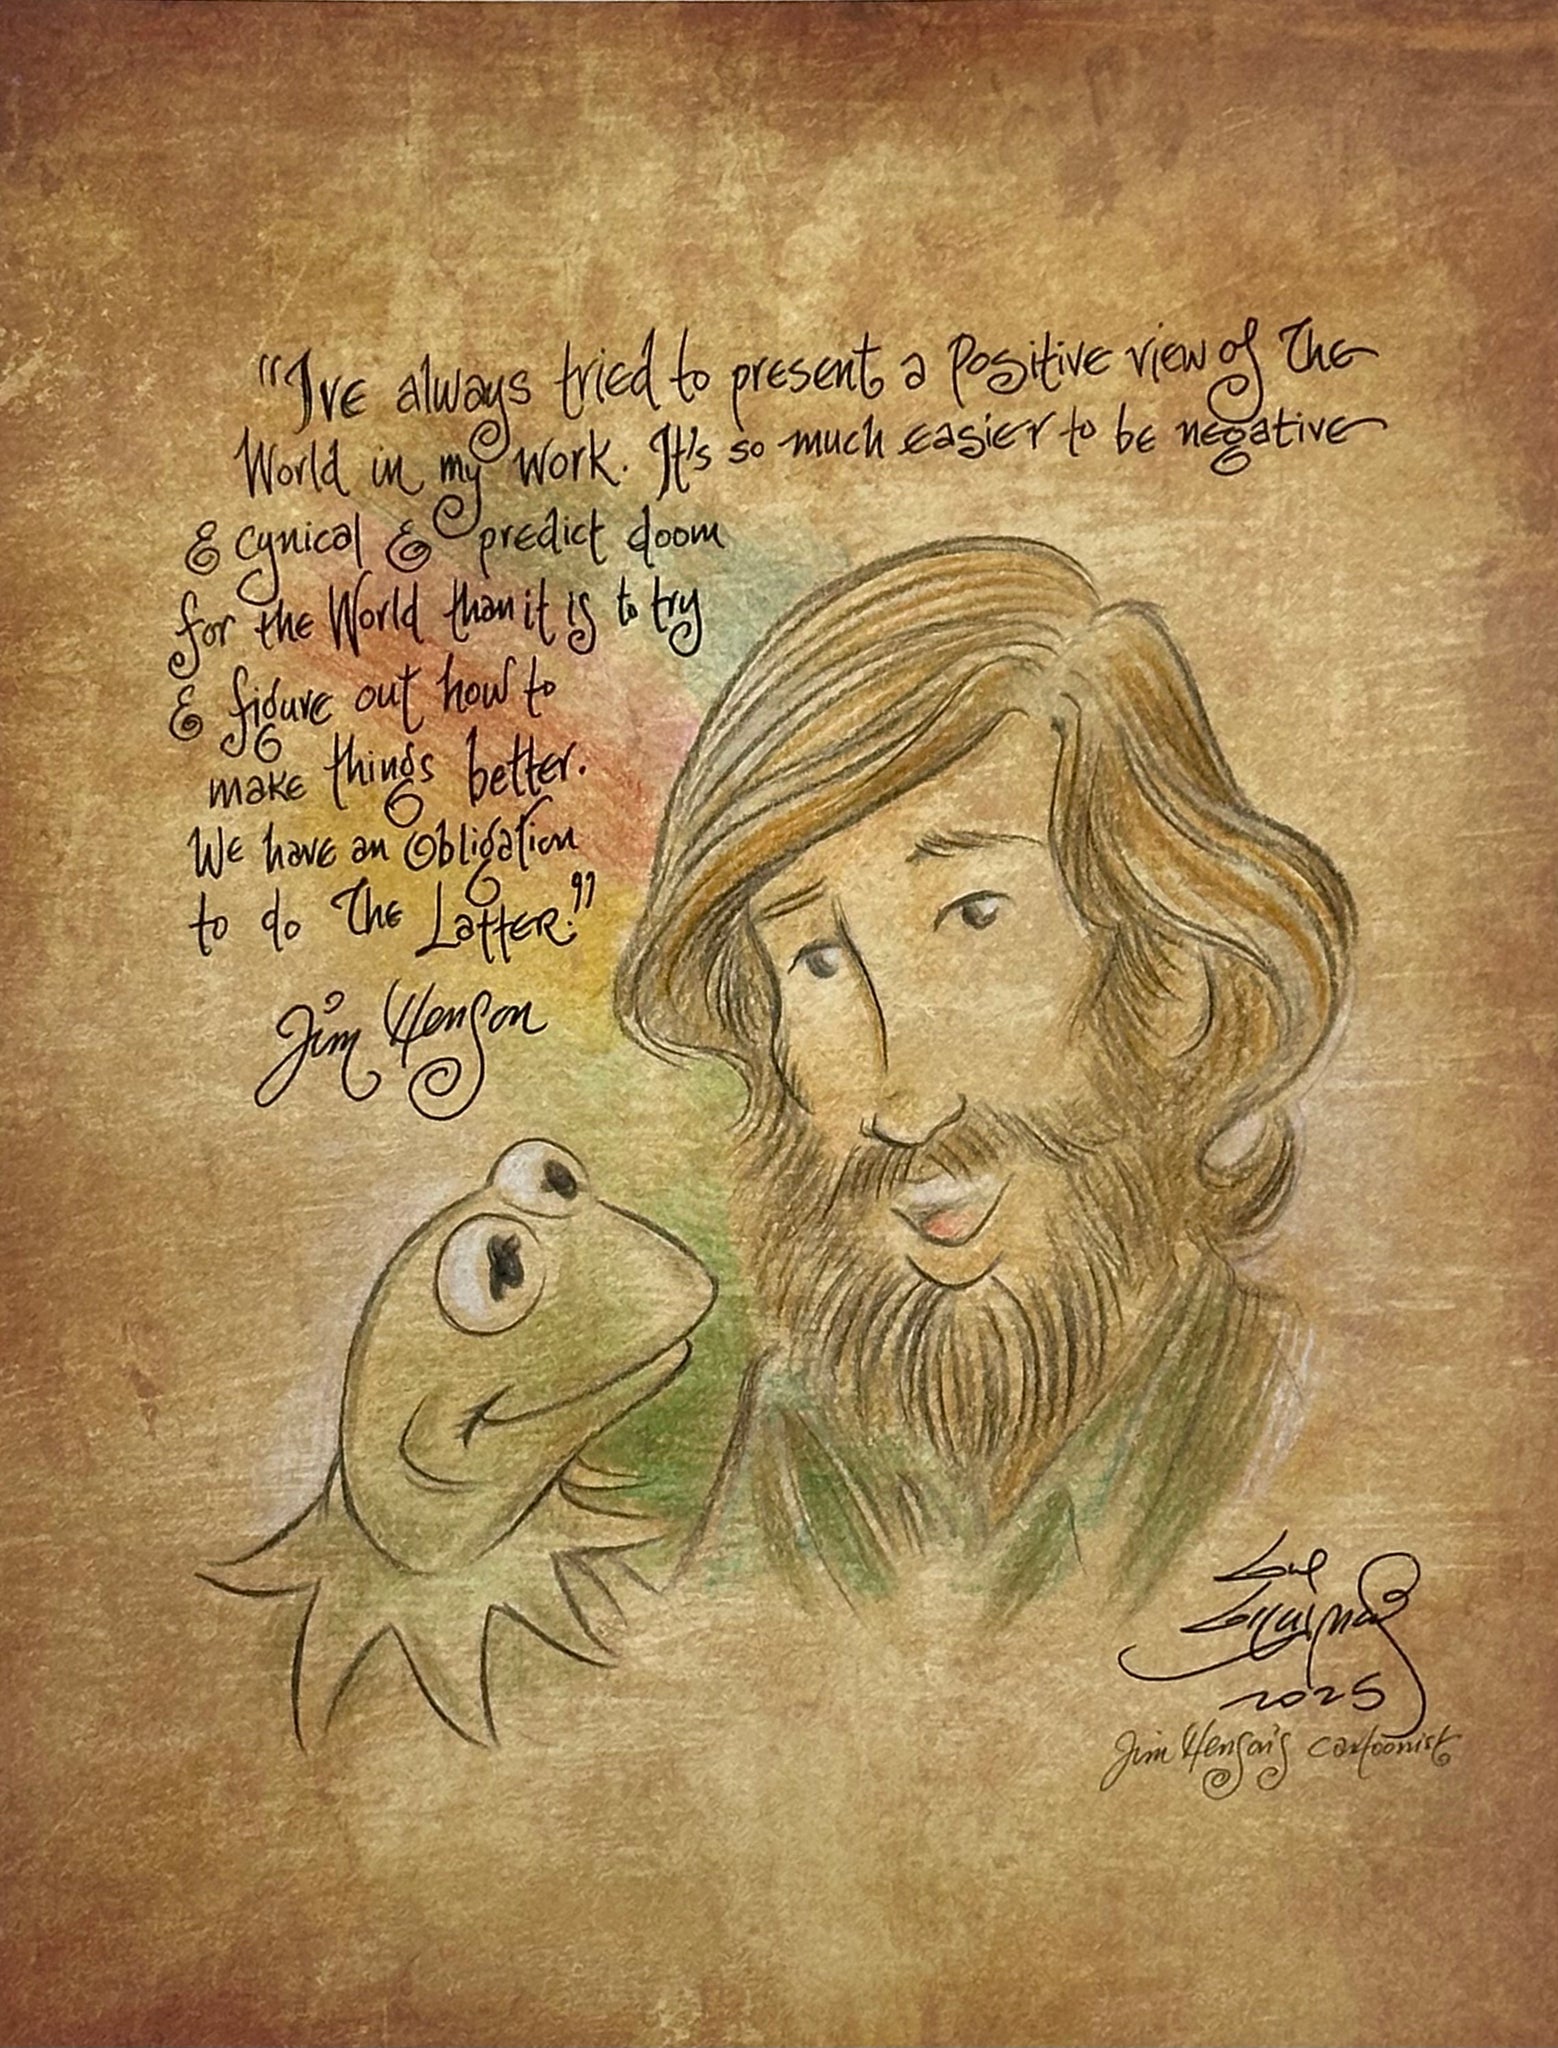 "I've always tried to present a Positive view of The
World in my work. It's so much easier to be negative
& cynical & predict doom
for the World than it is to try
& figure out how to
make things better.
We have an Obligation
to do The Latter."
Jim Henson
2025
Jim Henson's cartoonist